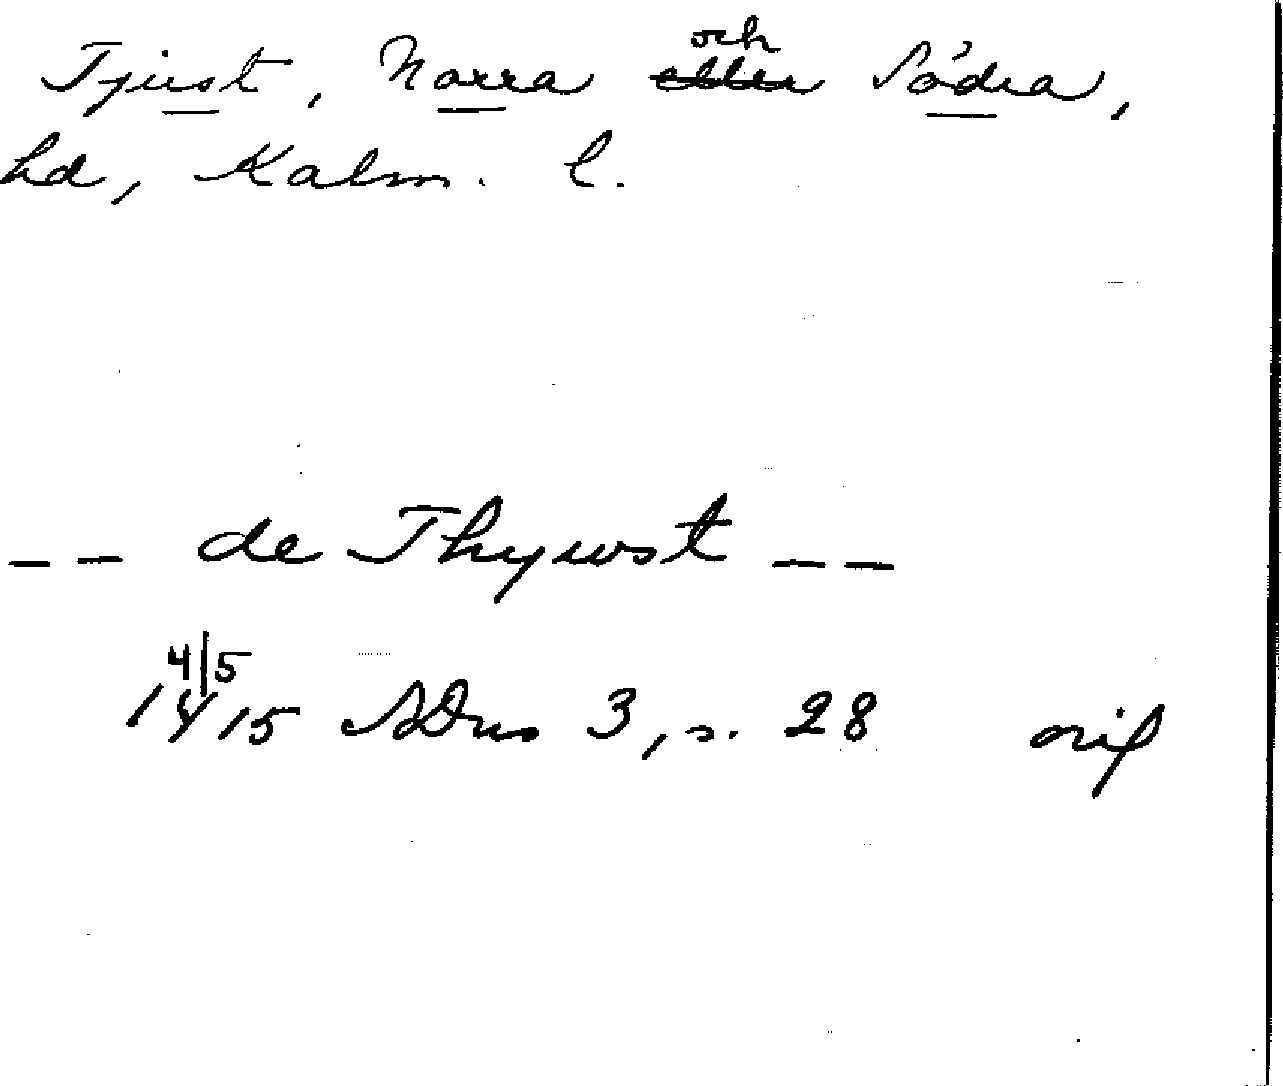 Tjust, Norra och Södra,
hd, Kalm. l.
-- de Thywst --
14/5 1415 SDns 3, s. 28 orig